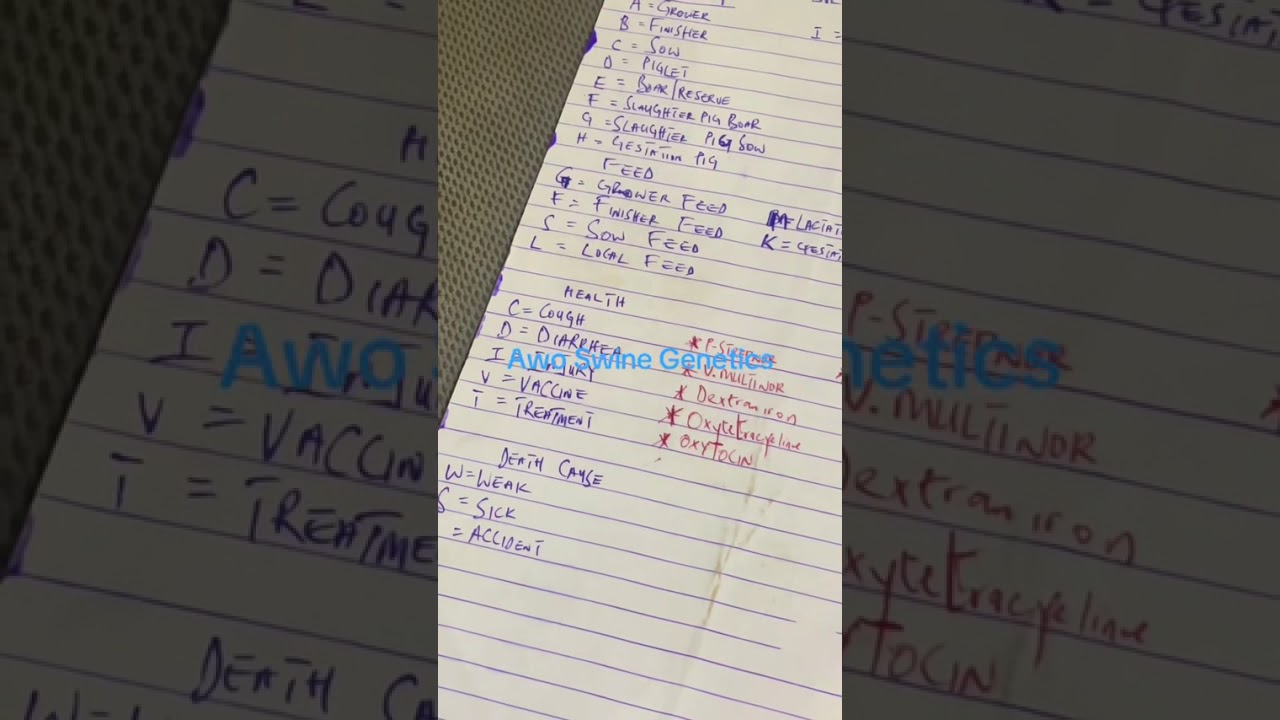 A = GROWER
B = FINISHER
C = SOW
D = PIGLET
E = BOAR/RESERVE
F = SLAUGHTER PIG BOAR
G = SLAUGHTER PIG SOW
H = GESTATION PIG
I =
FEED
G = GROWER FEED
F = FINISHER FEED
S = SOW FEED
L = LOCAL FEED
K =
HEALTH
C = COUGH
D = DIARRHEA
I = INJURY
V = VACCINE
T = TREATMENT
* P-STREPNOR
* V. MULTINOR
* Dextran iron
* Oxytetracycline
* OXYTOCIN
Awo Swine Genetics
DEATH CAUSE
W = WEAK
S = SICK
= ACCIDENT